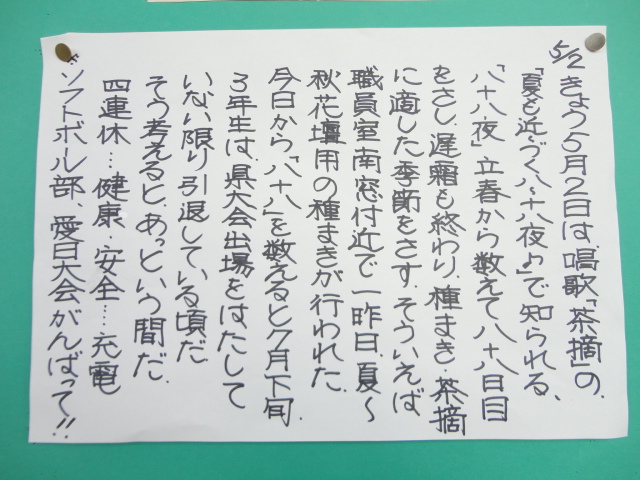 5/2 きょう5月2日は、唱歌「茶摘」の、
「夏も近づく八十八夜♪」で知られる、
「八十八夜」立春から数えて八十八日目
をさし、遅霜も終わり、種まき・茶摘
に適した季節をさす。そういえば
職員室南窓付近で一昨日、夏〜
秋花壇用の種まきが行われた。
今日から「八十八」を数えると7月下旬。
3年生は、県大会出場をはたして
いない限り引退している頃だ。
そう考えると、あっという間だ。
四連休…健康・安全…充電
※ソフトボール部、愛日大会がんばって!!